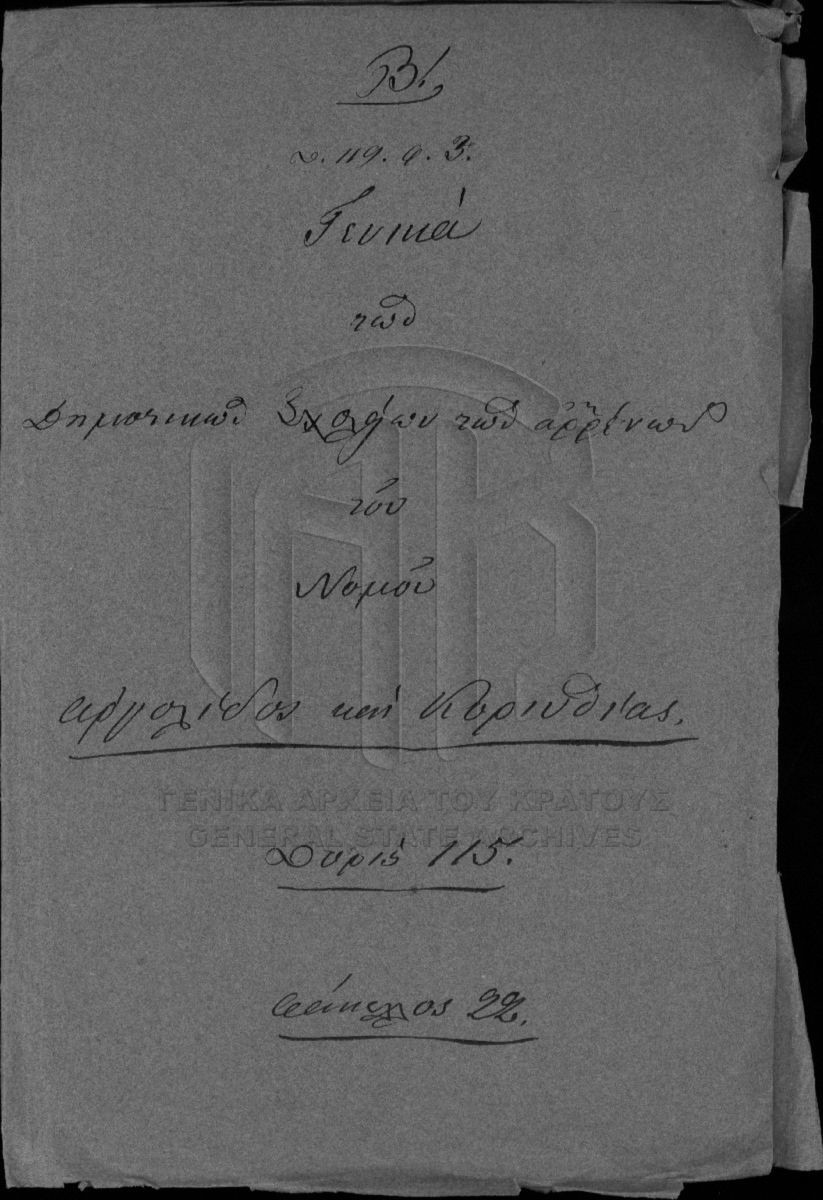 Β!
Δ. 119. φ. 3.
Γενικά
τῶν
Δημοτικῶν Σχολείων τῶν ἀῤῥένων
τοῦ
Νομοῦ
Ἀργολίδος καὶ Κορινθίας.
ΓΕΝΙΚΑ ΑΡΧΕΙΑ ΤΟΥ ΚΡΑΤΟΥΣ
GENERAL STATE ARCHIVES
Θυρὶς 115.
Φάκελλος 22.